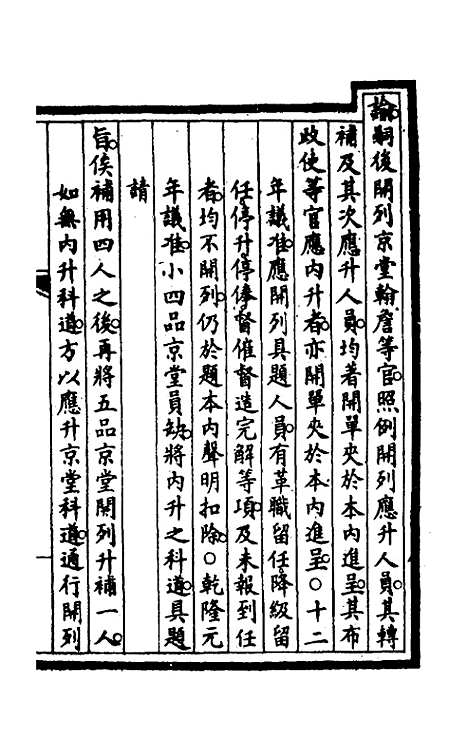 諭嗣後開列京堂翰詹等官照例開列應升人員其轉
補及其次應升人員均著開單夾於本内進呈其布
政使等官應内升者亦開單夾於本内進呈○十二
年議准應開列具題人員有革職留任降級留
任停升停俸督催督造完解等項及未報到任
者均不開列仍於題本内聲明扣除○乾隆元
年議准小四品京堂員缺將内升之科道具題
請
旨俟補用四人之後再將五品京堂開列升補一人
如無内升科道方以應升京堂科道通行開列